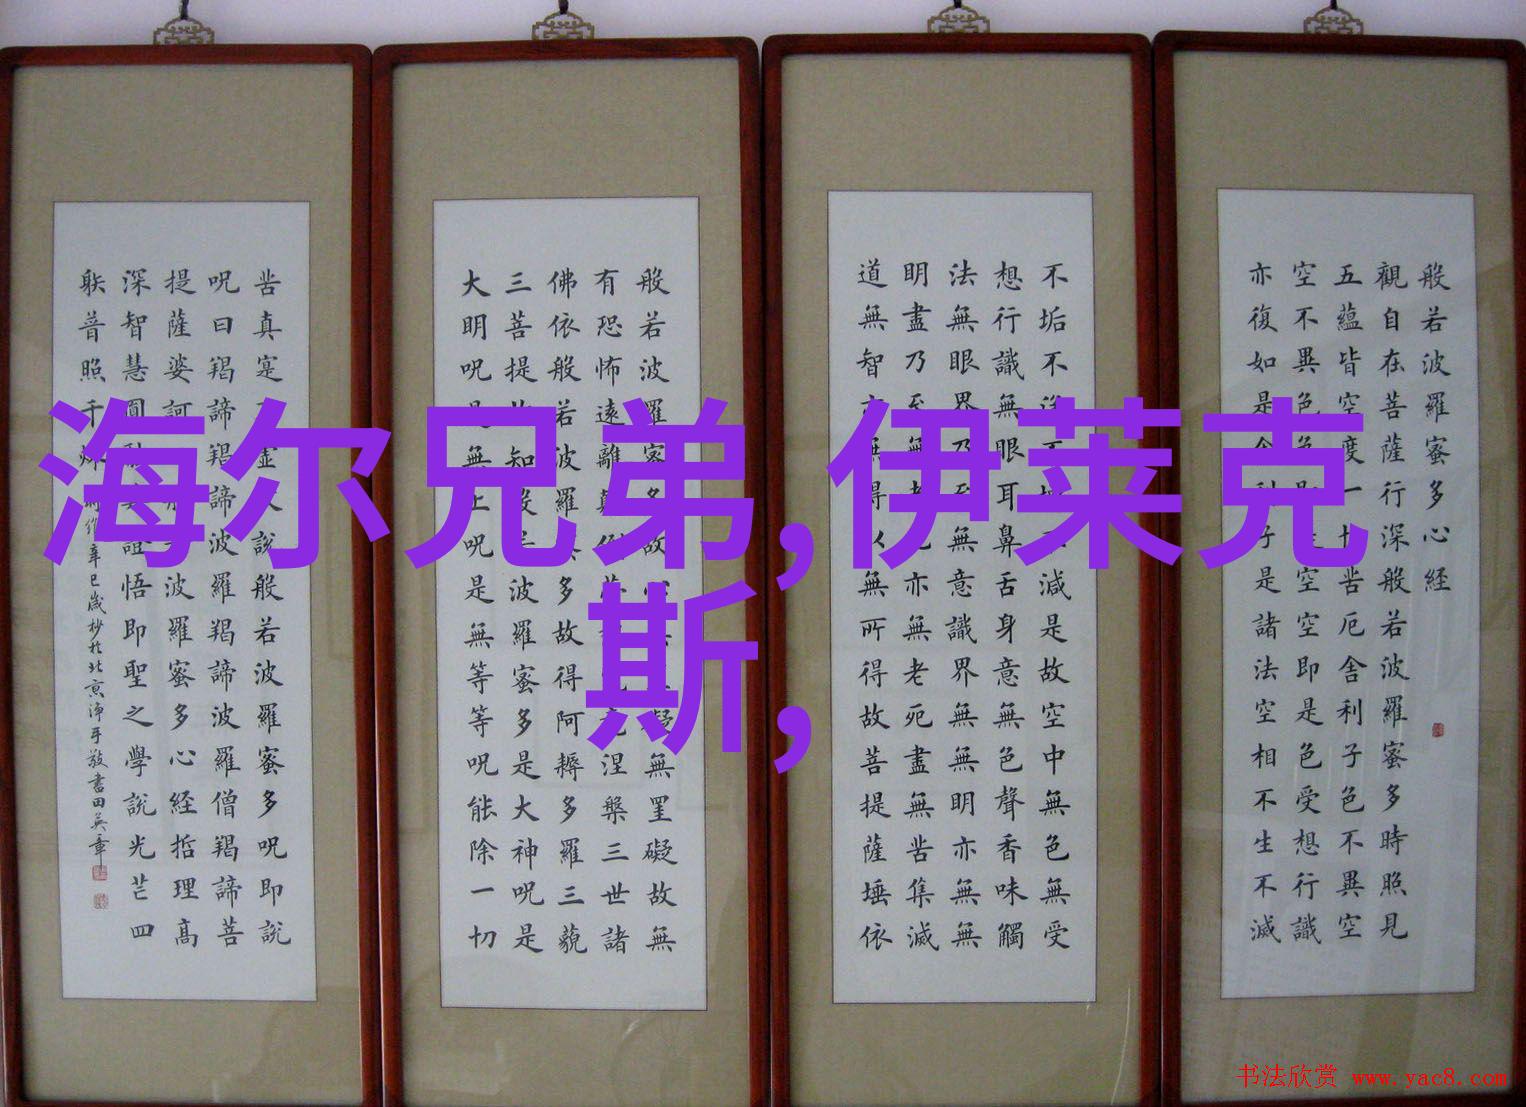 般若波羅蜜多心経
觀自在菩薩行深般若波羅蜜多時照見
五蘊皆空度一切苦厄舍利子色不異空
空不異色色即是空空即是色受想行識
亦復如是舍利子是諸法空相不生不滅
不垢不淨不減是故空中無色無受
想行識無眼耳鼻舌身意無色聲香味觸
法無眼界乃至無意識界無無明亦無無
明盡乃至無老死亦無老死盡無苦集滅
道無智亦無得以無所得故菩提薩埵依
般若波羅蜜多故心無礙無罣礙故無
有恐怖遠離顛倒夢竟涅槃三世諸
佛依般若波羅蜜多故得阿耨多羅三藐
三菩提故知般若波羅蜜多是大神呪是
大明呪是無上呪是無等等呪能除一切
苦真寔不虛說般若波羅蜜多呪即說
呪曰羯諦羯諦波羅羯諦波羅僧羯諦菩
提薩婆訶般波羅蜜多心経哲理高
深智慧圓融證悟即聖之學說光芒四
普照千作辛巳歲杪於北京淨手敬書田英章
海尔兄弟,伊莱克
斯,
书法欣赏 www.yac8.com